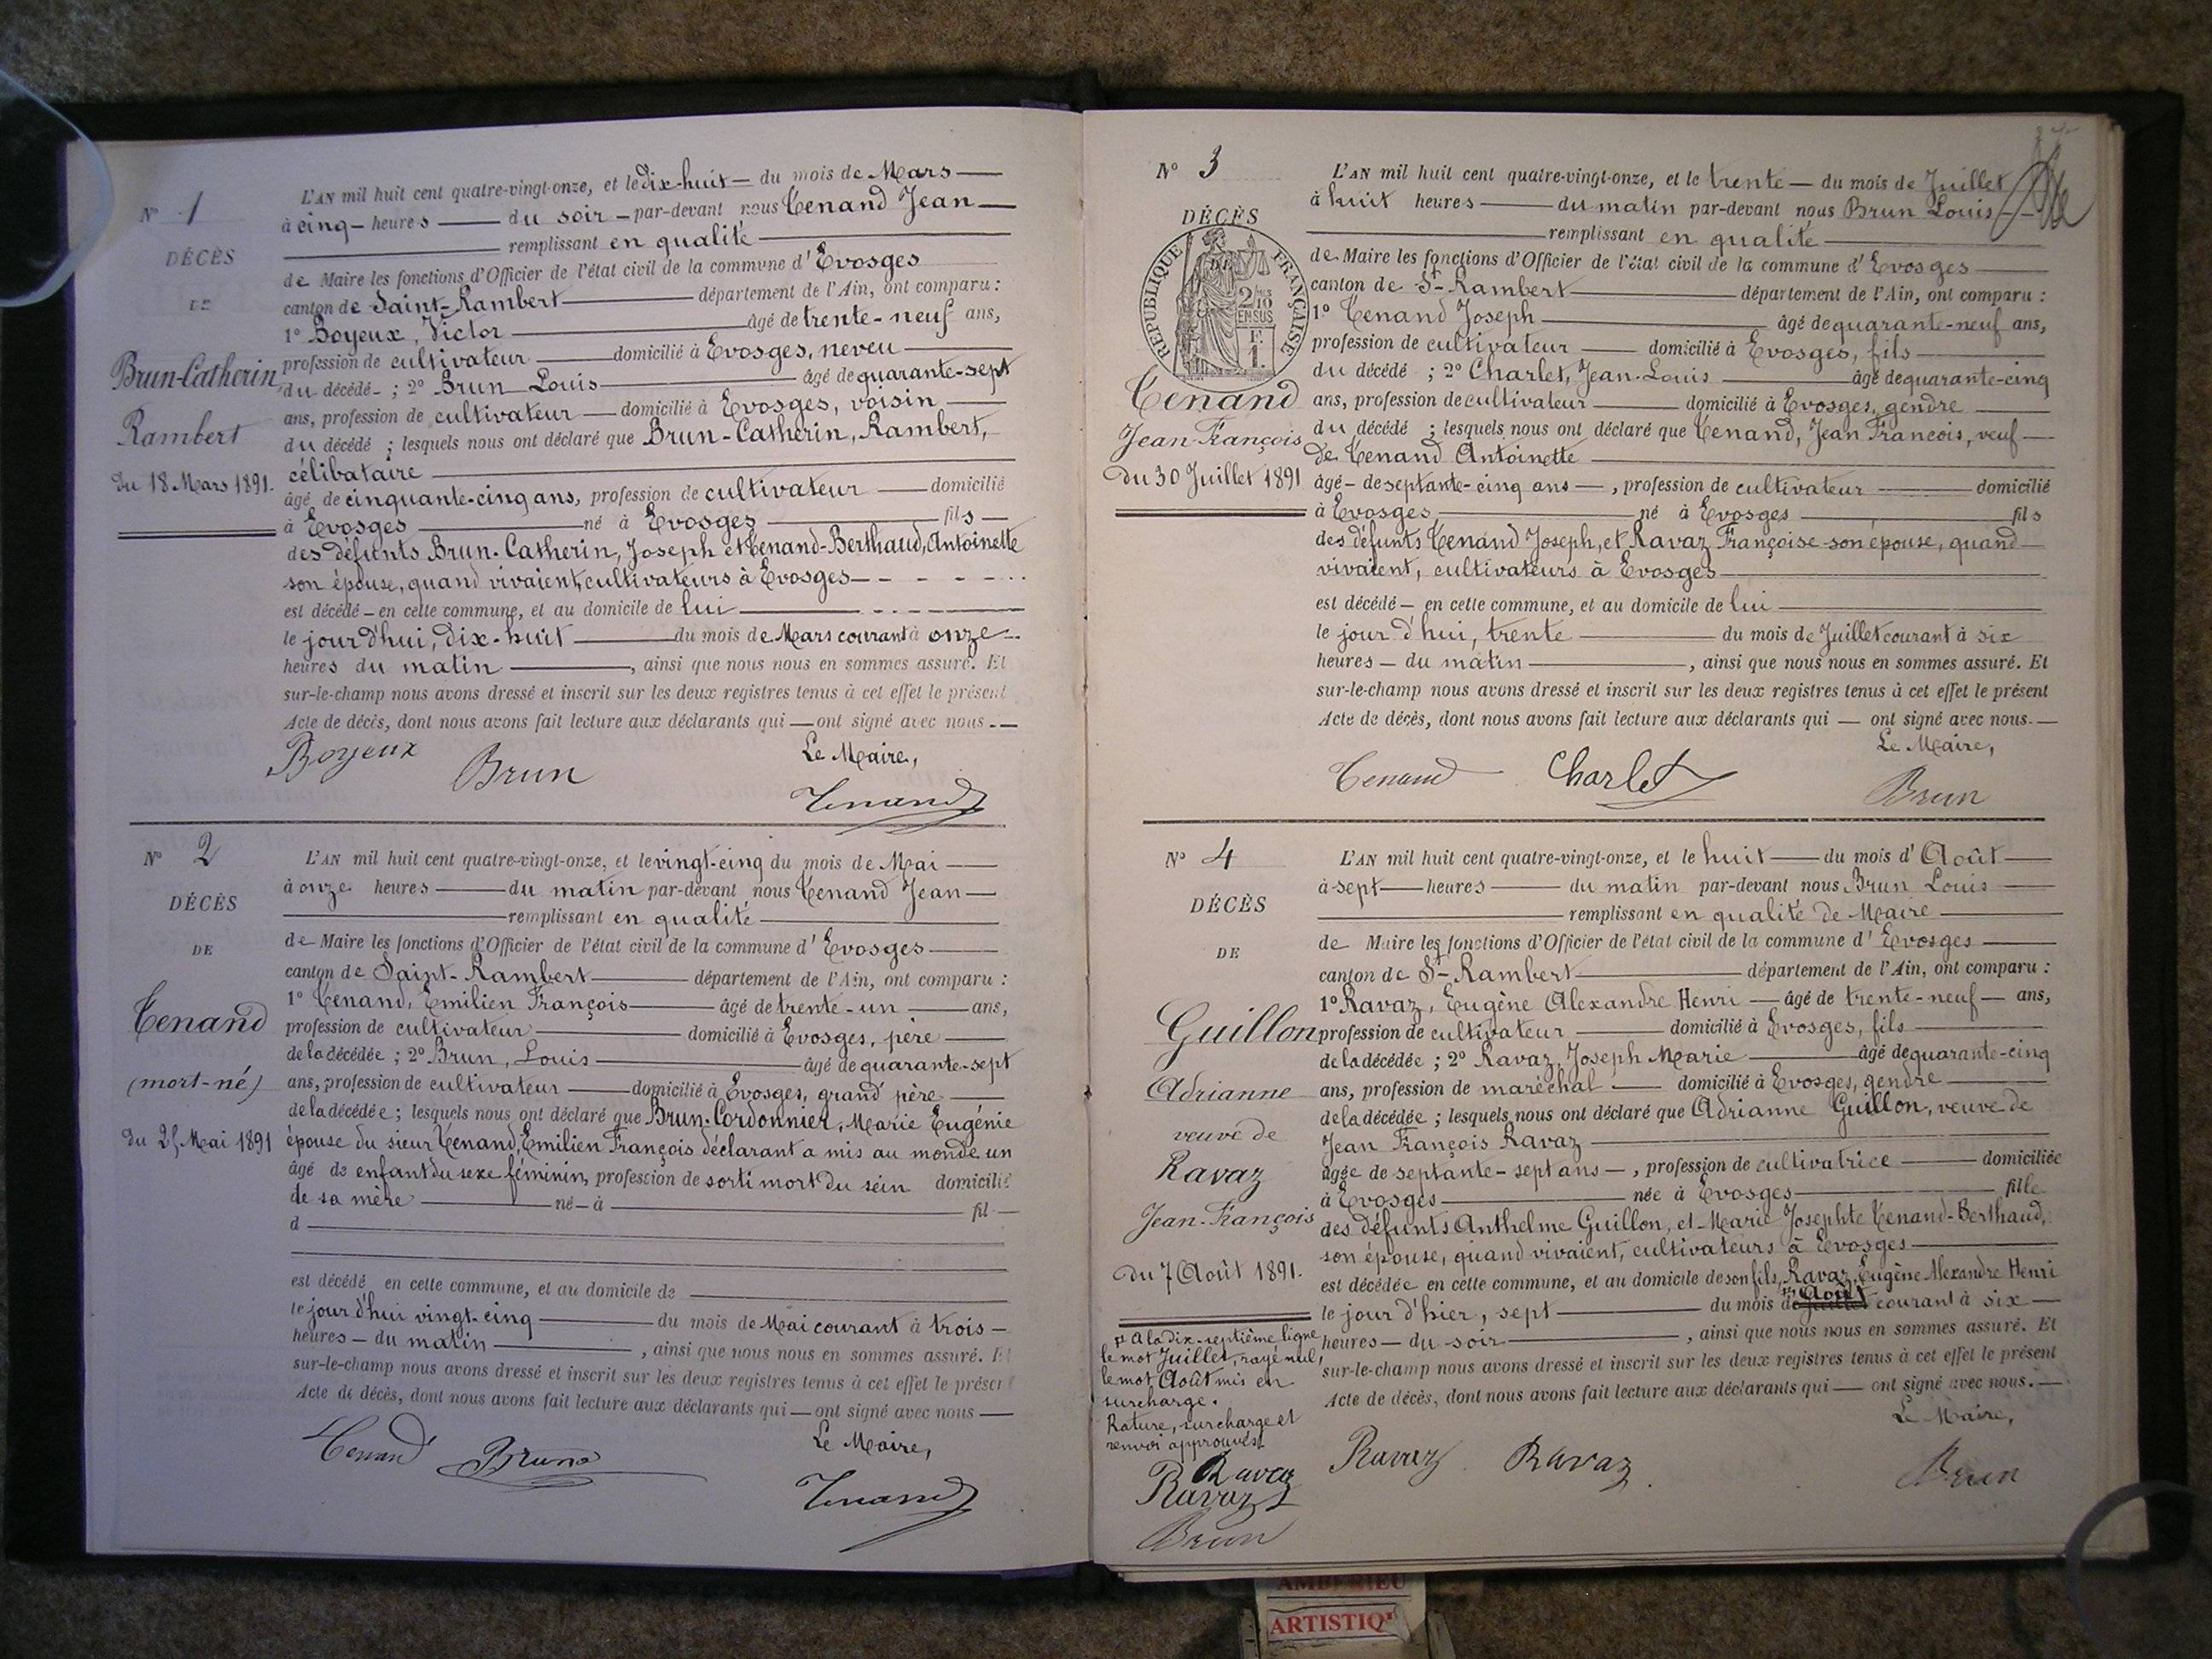 N° 1
DÉCÈS
DE
Brun-Catherin
Rambert
du 18 Mars 1891.
L'AN mil huit cent quatre-vingt-onze, et le dix-huit — du mois de Mars —
à cinq — heures — du soir — par-devant nous Tenand Jean —
— remplissant en qualité —
de Maire les fonctions d'Officier de l'état civil de la commune d'Evosges
canton de Saint-Rambert — département de l'Ain, ont comparu :
1° Boyeux, Victor — âgé de trente-neuf ans,
profession de cultivateur — domicilié à Evosges, neveu —
du décédé — ; 2° Brun Louis — âgé de quarante-sept
ans, profession de cultivateur — domicilié à Evosges, voisin —
du décédé ; lesquels nous ont déclaré que Brun-Catherin, Rambert,
célibataire —
âgé de cinquante-cinq ans, profession de cultivateur — domicilié
à Evosges — né à Evosges — fils —
des défunts Brun-Catherin, Joseph et Tenand-Berthaud, Antoinette
son épouse, quand vivaient, cultivateurs à Evosges — — — —
est décédé — en cette commune, et au domicile de lui —
le jour d'hui, dix-huit — du mois de Mars courant à onze —
heures du matin —, ainsi que nous nous en sommes assuré. Et
sur-le-champ nous avons dressé et inscrit sur les deux registres tenus à cet effet le présent
Acte de décès, dont nous avons fait lecture aux déclarants qui — ont signé avec nous. —
Le Maire,
Boyeux Brun Tenand
N° 2
DÉCÈS
DE
Tenand
(mort-né)
du 25 Mai 1891
L'AN mil huit cent quatre-vingt-onze, et le vingt-cinq du mois de Mai —
à onze heures — du matin par-devant nous Tenand Jean —
— remplissant en qualité —
de Maire les fonctions d'Officier de l'état civil de la commune d'Evosges —
canton de Saint-Rambert — département de l'Ain, ont comparu :
1° Tenand, Emilien François — âgé de trente-un — ans,
profession de cultivateur — domicilié à Evosges, père —
de la décédée ; 2° Brun, Louis — âgé de quarante-sept
ans, profession de cultivateur — domicilié à Evosges, grand'père —
de la décédée ; lesquels nous ont déclaré que Brun-Cordonnier, Marie Eugénie
épouse du sieur Tenand, Emilien François déclarant a mis au monde un
âgé de enfant du sexe féminin, profession de sorti mort du sein domicilié
de sa mère — né — à — fil —
d —
est décédé en cette commune, et au domicile de —
le jour d'hui vingt-cinq — du mois de Mai courant à trois —
heures — du matin —, ainsi que nous nous en sommes assuré. Et
sur-le-champ nous avons dressé et inscrit sur les deux registres tenus à cet effet le présent
Acte de décès, dont nous avons fait lecture aux déclarants qui — ont signé avec nous —
Le Maire,
Tenand Brun Tenand
N° 3
DÉCÈS
DE
RÉPUBLIQUE FRANÇAISE
2/10
EN SUS
F.
1.
Tenand
Jean François
du 30 Juillet 1891
L'AN mil huit cent quatre-vingt-onze, et le trente — du mois de Juillet
à huit heures — du matin par-devant nous Brun Louis —
— remplissant en qualité —
de Maire les fonctions d'Officier de l'état civil de la commune d'Evosges —
canton de St-Rambert — département de l'Ain, ont comparu :
1° Tenand Joseph — âgé de quarante-neuf ans,
profession de cultivateur — domicilié à Evosges, fils —
du décédé ; 2° Charlet, Jean-Louis — âgé de quarante-cinq
ans, profession de cultivateur — domicilié à Evosges, gendre —
du décédé ; lesquels nous ont déclaré que Tenand, Jean François, veuf —
de Tenand Antoinette —
âgé — de septante-cinq ans —, profession de cultivateur — domicilié
à Evosges — né à Evosges — fils
des défunts Tenand Joseph, et Ravaz Françoise son épouse, quand —
vivaient, cultivateurs à Evosges —
est décédé — en cette commune, et au domicile de lui —
le jour d'hui, trente — du mois de Juillet courant à six
heures — du matin —, ainsi que nous nous en sommes assuré. Et
sur-le-champ nous avons dressé et inscrit sur les deux registres tenus à cet effet le présent
Acte de décès, dont nous avons fait lecture aux déclarants qui — ont signé avec nous. —
Le Maire,
Tenand Charlet Brun
N° 4
DÉCÈS
DE
Guillon
Adrianne
veuve de
Ravaz
Jean-François
du 7 Août 1891.
L'AN mil huit cent quatre-vingt-onze, et le huit — du mois d'Août —
à sept — heures — du matin par-devant nous Brun Louis —
— remplissant en qualité de Maire —
de Maire les fonctions d'Officier de l'état civil de la commune d'Evosges —
canton de St-Rambert — département de l'Ain, ont comparu :
1° Ravaz, Eugène Alexandre Henri — âgé de trente-neuf — ans,
profession de cultivateur — domicilié à Evosges, fils —
de la décédée ; 2° Ravaz, Joseph Marie — âgé de quarante-cinq
ans, profession de maréchal — domicilié à Evosges, gendre —
de la décédée ; lesquels nous ont déclaré que Adrianne Guillon, veuve de
Jean François Ravaz —
âgée de septante-sept ans —, profession de cultivatrice — domiciliée
à Evosges — née à Evosges — fille
des défunts Anthelme Guillon, et Marie Josephte Tenand-Berthaud,
son épouse, quand vivaient, cultivateurs à Evosges —
est décédée en cette commune, et au domicile de son fils, Ravaz, Eugène Alexandre Henri
le jour d'hier, sept — du mois de Juillet Août courant à six —
heures — du soir —, ainsi que nous nous en sommes assuré. Et
sur-le-champ nous avons dressé et inscrit sur les deux registres tenus à cet effet le présent
Acte de décès, dont nous avons fait lecture aux déclarants qui — ont signé avec nous. —
Le Maire,
Ravaz Ravaz Brun
A la dix-septième ligne
le mot Juillet, rayé nul,
le mot Août mis en
surcharge.
Rature, surcharge et
renvoi approuvés
Ravaz
Ravaz
Brun
AMBERIEU
ARTISTIQ